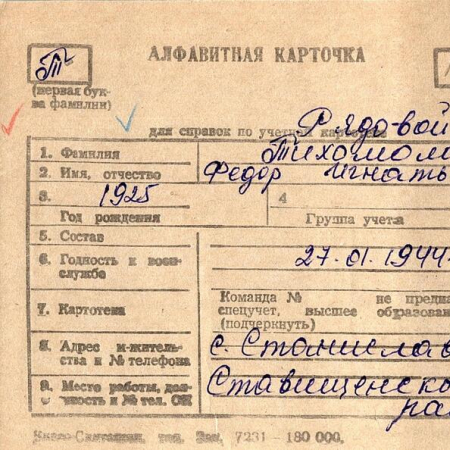 Т
АЛФАВИТНАЯ КАРТОЧКА
(первая бук-
ва фамилии)
для справок по учетной карточке
Рядовой
1. Фамилия Тихомол
2. Имя, отчество Федор Игнать
3. 1925
Год рождения
4
Группа учета
5. Состав
6. Годность к воен-
службе
27.01.1944
7. Картотека
Команда № не предна
спецучет, высшее образован
(подчеркнуть)
8. Адрес м-житель-
ства и № телефона
с. Станислав
9. Место работы, дол-
жность и № тел. ОК
Ставищенско
рай
7231 — 180 000.